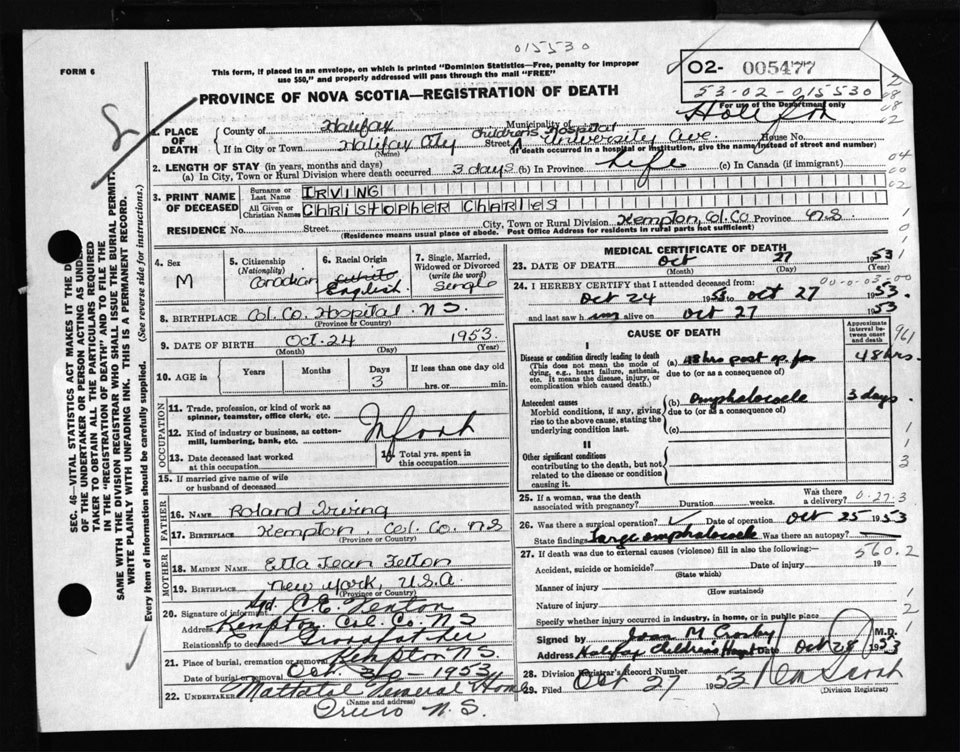 015530
FORM 6
This form, if placed in an envelope, on which is printed "Dominion Statistics—Free, penalty for improper
use $50," and properly addressed will pass through the mail "FREE"
O2- 005477
53-02-015530
For use of the Department only
PROVINCE OF NOVA SCOTIA—REGISTRATION OF DEATH
Halifax
1. PLACE OF DEATH
County of Halifax Municipality of
If in City or Town Halifax City Street Childrens Hospital University Ave. House No.
(Name) (If death occurred in a hospital or institution, give the name instead of street and number)
2. LENGTH OF STAY (in years, months and days)
(a) In City, Town or Rural Division where death occurred 3 days (b) In Province Life (c) In Canada (if immigrant)
3. PRINT NAME OF DECEASED
Surname or Last Name IRVING
All Given or Christian Names CHRISTOPHER CHARLES
RESIDENCE No. Street City, Town or Rural Division Kempton, Col. Co Province N.S
(Residence means usual place of abode. Post Office Address for residents in rural parts not sufficient)
4. Sex M
5. Citizenship (Nationality) Canadian
6. Racial Origin White English
7. Single, Married, Widowed or Divorced (write the word) Single
8. BIRTHPLACE Col. Co. Hospital. N.S.
(Province or Country)
9. DATE OF BIRTH Oct. 24 1953
(Month) (Day) (Year)
10. AGE in Years Months Days 3 If less than one day old hrs. or min.
OCCUPATION
11. Trade, profession, or kind of work as spinner, teamster, office clerk, etc.
12. Kind of industry or business, as cotton-mill, lumbering, bank, etc.
Infant
13. Date deceased last worked at this occupation
14. Total yrs. spent in this occupation
15. If married give name of wife or husband of deceased
FATHER
16. NAME Roland Irving
17. BIRTHPLACE Kempton, Col. Co. N.S
(Province or Country)
MOTHER
18. MAIDEN NAME Etta Jean
19. BIRTHPLACE New York, U.S.A.
(Province or Country)
20. Signature of informant Sgd. C.E.
Address Kempton Col. Co. N.S
Relationship to deceased Grandfather
21. Place of burial, cremation or removal Kempton N.S.
Date of burial or removal Oct. 30 - 1953
22. UNDERTAKER Mattatal Funeral Home
(Name and address)
Truro N.S.
MEDICAL CERTIFICATE OF DEATH
23. DATE OF DEATH Oct 27 1953
(Month) (Day) (Year)
24. I HEREBY CERTIFY that I attended deceased from:
Oct 24 1953 to Oct 27 1953
and last saw him alive on Oct 27 1953
CAUSE OF DEATH
Approximate interval between onset and death
I
Disease or condition directly leading to death (a) 48 hrs post op. for 48 hrs.
(This does not mean the mode of dying, e.g., heart failure, asthenia, etc. It means the disease, injury, or complication which caused death.)
due to (or as a consequence of)
Antecedent causes (b) omphalocele 3 days.
Morbid conditions, if any, giving rise to the above cause, stating the underlying condition last.
due to (or as a consequence of)
(c)
II
Other significant conditions contributing to the death, but not related to the disease or condition causing it.
25. If a woman, was the death associated with pregnancy? Duration weeks. Was there a delivery?
0-27-3
26. Was there a surgical operation? ✓ Date of operation Oct 25 1953
State findings Large omphalocele Was there an autopsy?
27. If death was due to external causes (violence) fill in also the following:—
560.2
Accident, suicide or homicide? Date of injury 19
(State which)
Manner of injury
(How sustained)
Nature of injury
Specify whether injury occurred in industry, in home, or in public place
Signed by Joan M Crosby M.D.
Address Halifax Childrens Hospt Date Oct 28 1953
28. Division Registrar's Record Number
29. Filed Oct 27 1953
(Division Registrar)
SEC. 46—VITAL STATISTICS ACT MAKES IT THE D
OF THE UNDERTAKER OR PERSON ACTING AS UNDER
TAKER TO OBTAIN ALL THE PARTICULARS REQUIRED
IN THE "REGISTRATION OF DEATH" AND TO FILE THE
SAME WITH THE DIVISION REGISTRAR WHO SHALL ISSUE THE BURIAL PERMIT.
WRITE PLAINLY WITH UNFADING INK. THIS IS A PERMANENT RECORD.
Every item of information should be carefully supplied. (See reverse side for instructions.)